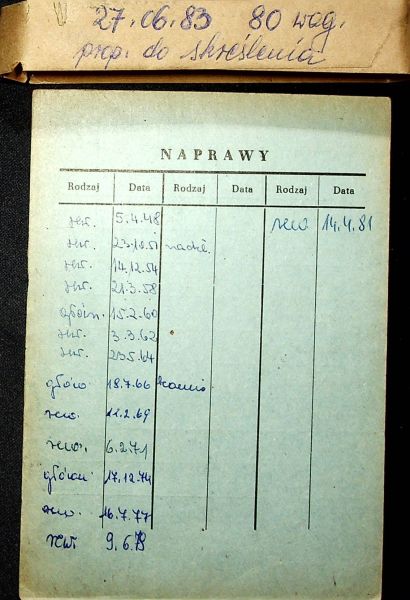 27.06.83 80 wag.
prop. do skreślenia
NAPRAWY
Rodzaj Data Rodzaj Data Rodzaj Data
rew. 5.4.48 rew 14.4.81
rew. 23.10.51
rew. 14.12.54
rew. 21.3.58
główn. 15.2.60
rew. 3.3.62
rew. 23.5.64
główn. 18.7.66
rew. 11.2.69
rew. 6.2.71
główn. 17.12.74
rew. 16.7.77
rew. 9.6.79